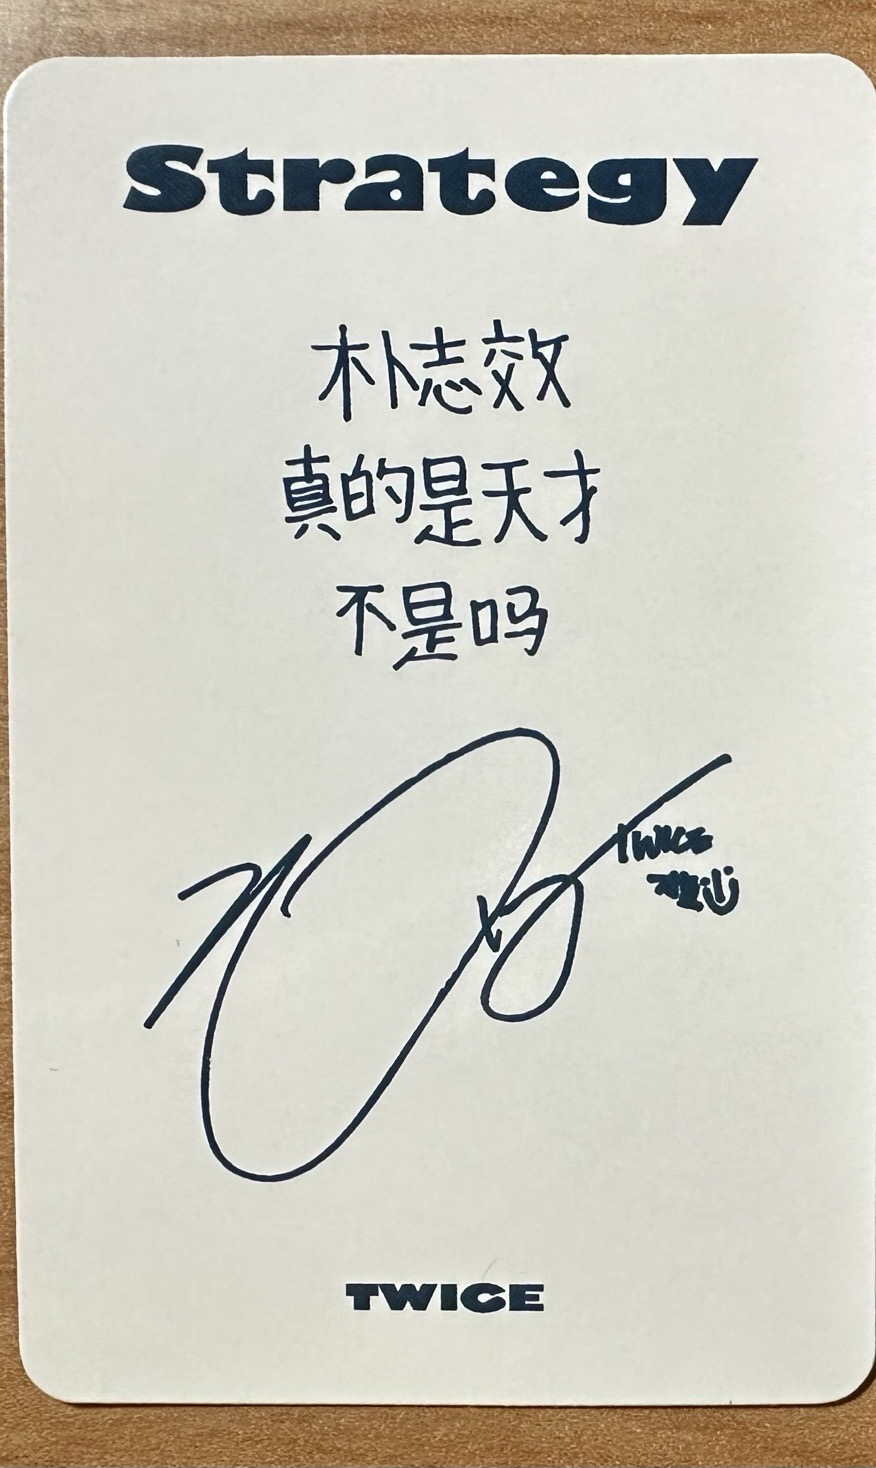 Strategy
朴志效
真的是天才
不是吗
TWICE
TWICE